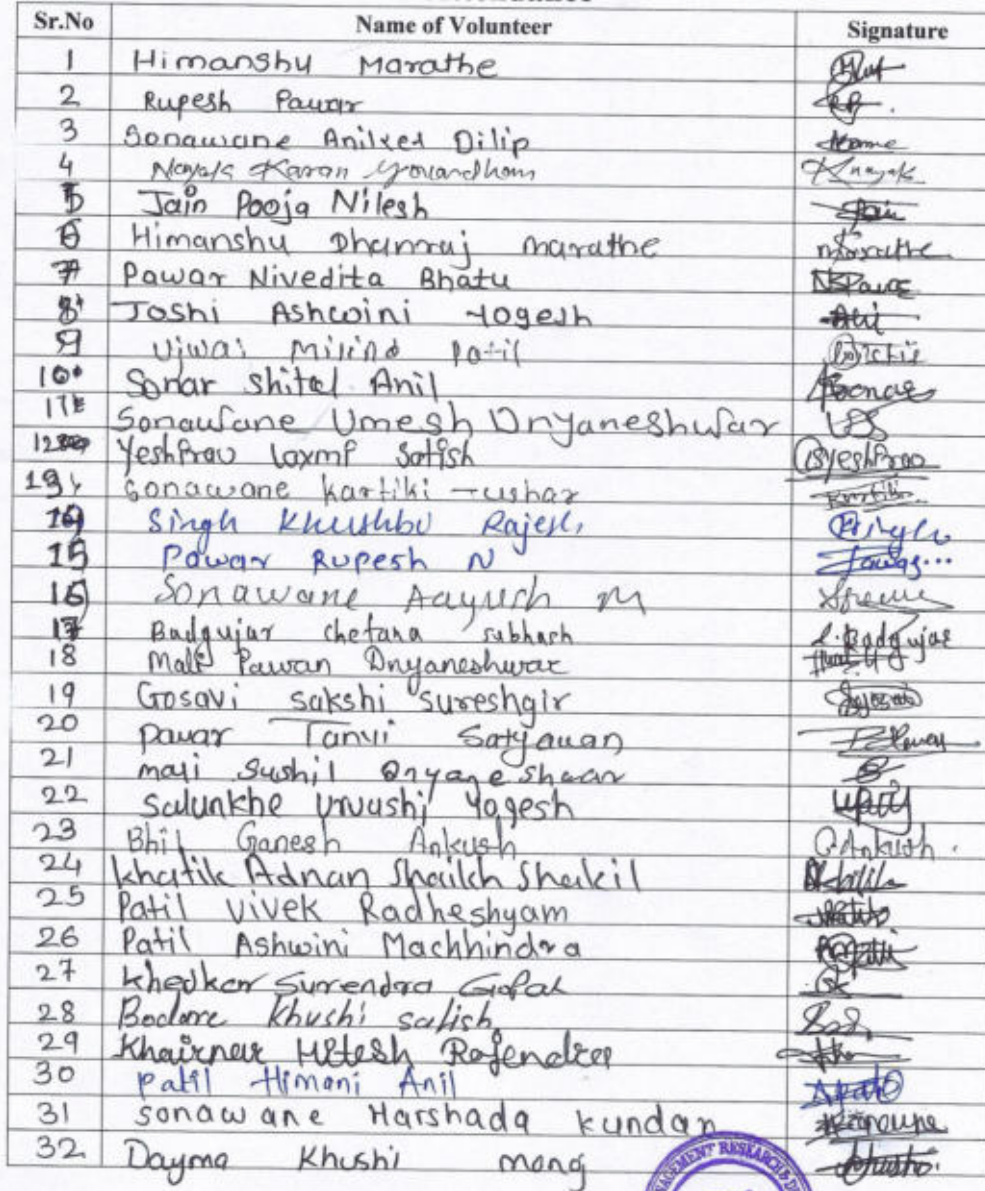 Sr.No Name of Volunteer Signature
1 Himanshu Marathe
2 Rupesh Pawar RP.
3 Sonawane Aniket Dilip
4 Nayak Karan Knayak
5 Jain Pooja Nilesh Jain
6 Himanshu Dhanraj marathe marathe
7 Pawar Nivedita Bhatu NBPawar
8 Joshi Ashwini Yogesh
9 Ujwal Milind Patil
10 Sonar Shital Anil Sonar
11 Sonawane Umesh Dnyaneshwar
12 Yeshirav Laxmi Satish
13 Sonawane kartiki Tushar Kartiki
14 Singh Khushbu Rajesh
15 Pawar Rupesh N
16 Sonawane Aayush M
17 Badgujar chetana subhash C.Badgujar
18 Mali Pawan Dnyaneshwar
19 Gosavi sakshi sureshgir
20 Pawar Tanvi Satyawan
21 mali Sushil Dnyaneshaar
22 Salunkhe Urvashi Yogesh
23 Bhil Ganesh Ankush G.Ankush.
24 Khatik Adnan Shaikh Shakil
25 Patil Vivek Radheshyam
26 Patil Ashwini Machhindra
27 Khedkar Surendra Gopal
28 Khushi satish
29 Khairnar Hitesh Rajendra
30 Patil Himani Anil
31 sonawane Harshada kundan
32 Dayma Khushi manoj
MANAGEMENT RESEARCH &